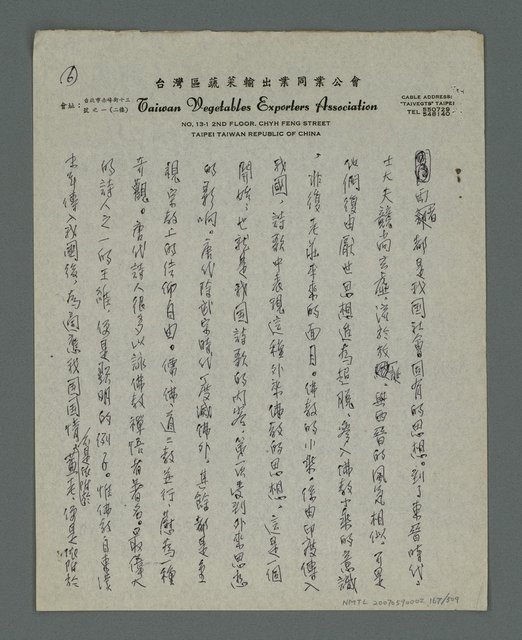 (6)
台灣區蔬菜輸出業同業公會
會址：台北市赤峰街十三號之一(二樓)
Taiwan Vegetables Exporters Association
NO. 13-1 2ND FLOOR, CHYH FENG STREET
TAIPEI TAIWAN REPUBLIC OF CHINA
CABLE ADDRESS:
"TAIVEGTS" TAIPEI
TEL 550729
548140
由 都是我国社會固有的思想。到了東晉時代。
士大夫競尚玄虛，淫於放 ，與西晉的風気相似。可是
他們復由厭世思想進為超脫，參入佛教小乘的意識
，非復老莊平來的面目。佛教的小乘，係由印度傳入
我國，詩歌中表現這種外來佛教的思想，這是一個
開始；也就是我国詩歌的内容，第一次受到外來思想
的影响。唐代除武宗時代一度滅佛外，其餘都是重
視宗教上的信仰自由。儒、佛、道三教並行，蔚為一種
奇觀。唐代詩人很多以詠佛教禪悟有著名。最偉大
的詩人之一的王維，便是顯明的例子。惟佛教自東漢
末年傳入我國後，為適應我国国情，
NMTL 20070590002 167/309